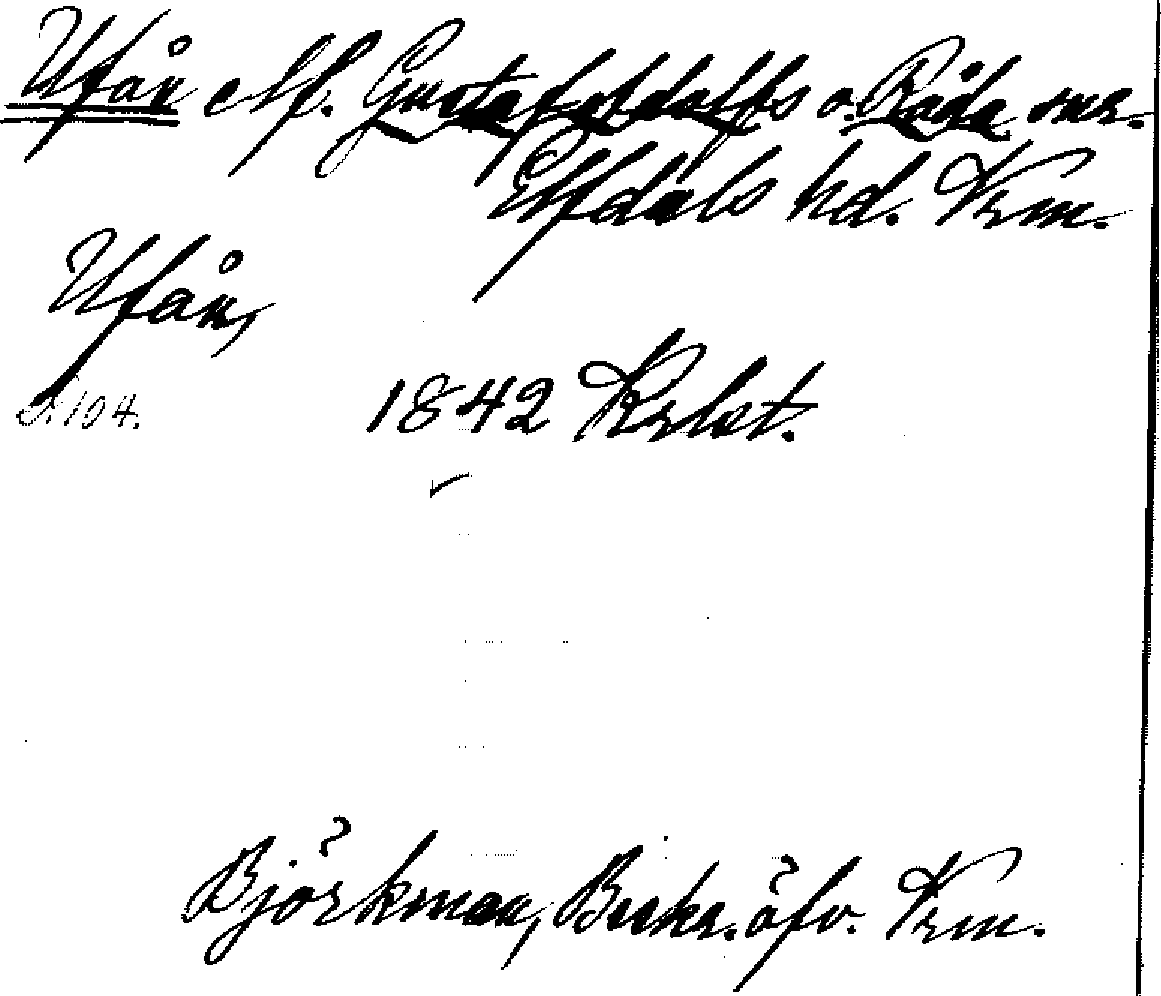 Ufån elf. Gustaf Adolfs o. Råda snr.
Elfdals hd. Vrm.
Ufån,
S. 104. 1842 Krlst.
Björkman, Beskr. öfv. Vrm.